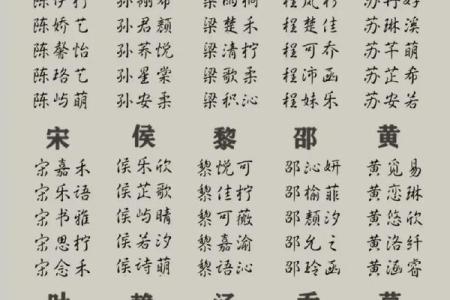 陈娇艺 孙君颜 梁楚禾 程楚佳 苏琳溪
陈馨怡 孙荞悦 梁清柠 程可乔 苏芊萌
陈珞艺 孙星棠 梁歌柔 程沛函 苏芷希
陈屿萌 孙安柔 梁积沁 程妹乐 苏安若
宋 侯 黎 邵 黄
宋嘉禾 侯乐欣 黎悦可 邵沁妍 黄觅易
宋乐语 侯芷歌 黎佳柠 邵榆菲 黄恋琳
宋书雅 侯屿晴 黎可薇 邵颜汐 黄悠欣
宋思柠 侯若汐 黎嘉渝 邵允之 黄洛纤
宋念禾 侯诗萌 黎语沁 邵玲函 黄涵睿